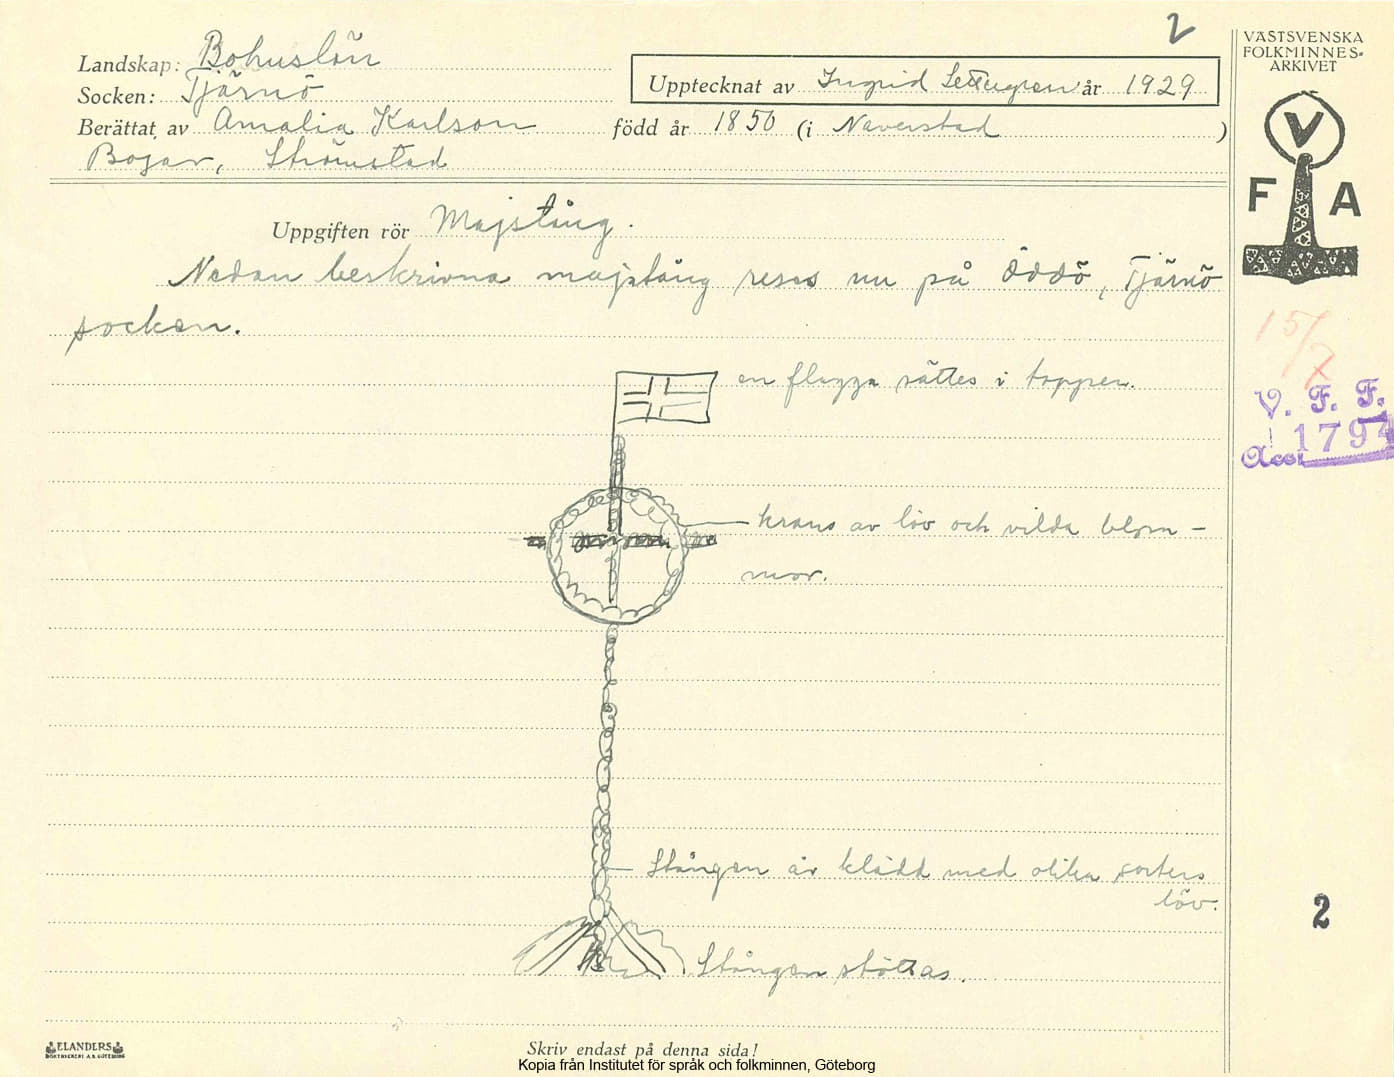 2
VÄSTSVENSKA
FOLKMINNES-
ARKIVET
Landskap: Bohuslän
Socken: Tjärnö
Upptecknat av Ingrid år 1929
Berättat av Amalia Karlson född år 1850 (i Naverstad)
Bojar, Strömstad
V
F A
Uppgiften rör Majstång.
Nedan beskrivna majstång reses nu på Öddö, Tjärnö
socken.
15/7
en flagga sättes i toppen.
V. F. F.
Acc. 1794
krans av löv och vilda blom-
mor.
Stången är klädd med olika sorters
löv.
2
Stången stöttas.
ELANDERS
BOKTRYCKERI A.B. GÖTEBORG
Skriv endast på denna sida!
Kopia från Institutet för språk och folkminnen, Göteborg